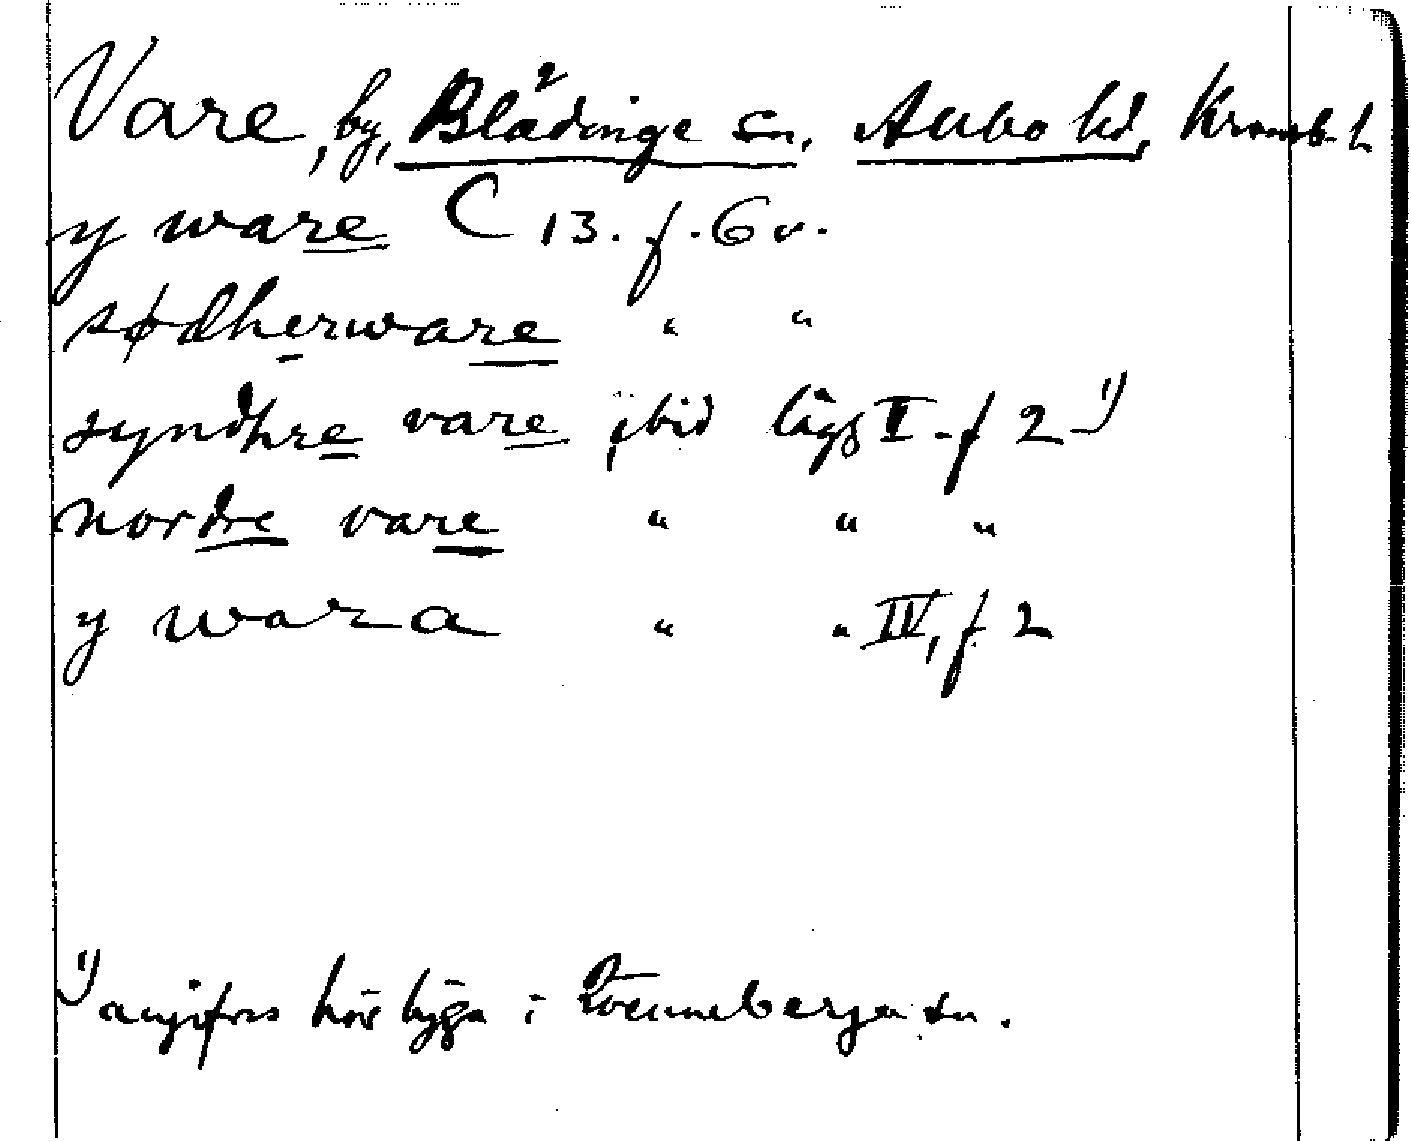 Vare, by, Blädinge sn, Allbo hd, Kronob. l.
y ware C 13. f. 6 v.
sødherware " "
syndhre vare ibid lägg II. f 2 1)
nordre vare " " "
y wara " " IV, f 2
1) angifves här ligga i Wenneberga sn.